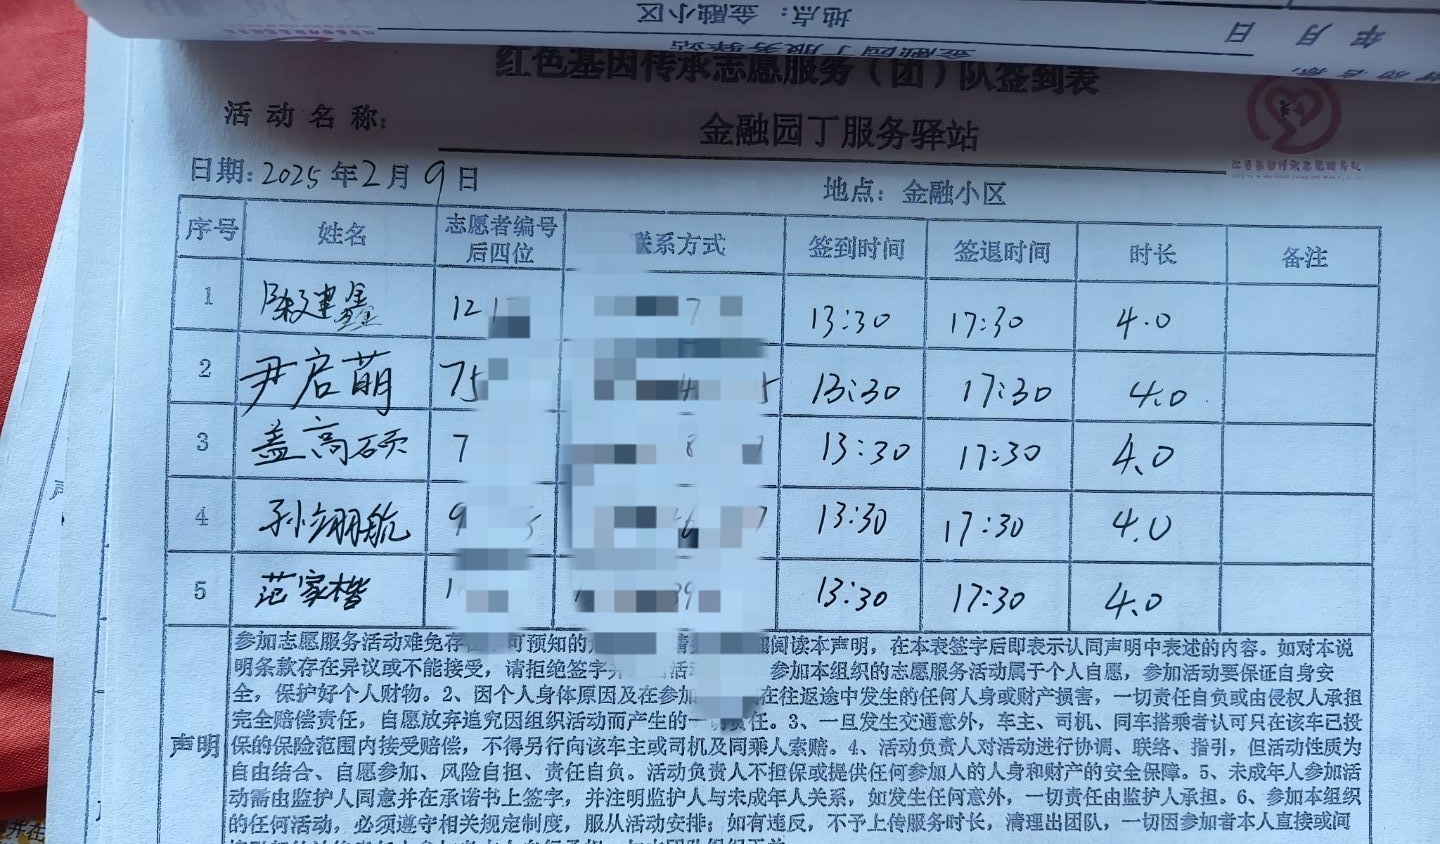 地点：金融小区
年 月 日
金融园丁服务驿站
红色基因传承志愿服务（团）队签到表
活动名称：
金融园丁服务驿站
日期：2025年2月9日
地点：金融小区
序号 姓名 志愿者编号后四位 联系方式 签到时间 签退时间 时长 备注
1 陈建鑫 121 7 13:30 17:30 4.0
2 尹启萌 75 4 5 13:30 17:30 4.0
3 盖高硕 7 8 13:30 17:30 4.0
4 孙翊航 9 5 7 13:30 17:30 4.0
5 范家楷 1 39 13:30 17:30 4.0
声明
参加志愿服务活动难免存 可预知的 阅读本声明，在本表签字后即表示认同声明中表述的内容。如对本说
明条款存在异议或不能接受，请拒绝签字并 活动 参加本组织的志愿服务活动属于个人自愿，参加活动要保证自身安
全，保护好个人财物。2、因个人身体原因及在参加 在往返途中发生的任何人身或财产损害，一切责任自负或由侵权人承担
完全赔偿责任，自愿放弃追究因组织活动而产生的一切责任。3、一旦发生交通意外，车主、司机、同车搭乘者认可只在该车已投
保的保险范围内接受赔偿，不得另行向该车主或司机及同乘人索赔。4、活动负责人对活动进行协调、联络、指引，但活动性质为
自由结合、自愿参加、风险自担、责任自负。活动负责人不担保或提供任何参加人的人身和财产的安全保障。5、未成年人参加活
动需由监护人同意并在承诺书上签字，并注明监护人与未成年人关系，如发生任何意外，一切责任由监护人承担。6、参加本组织
的任何活动，必须遵守相关规定制度，服从活动安排；如有违反，不予上传服务时长，清理出团队，一切因参加者本人直接或间
并在